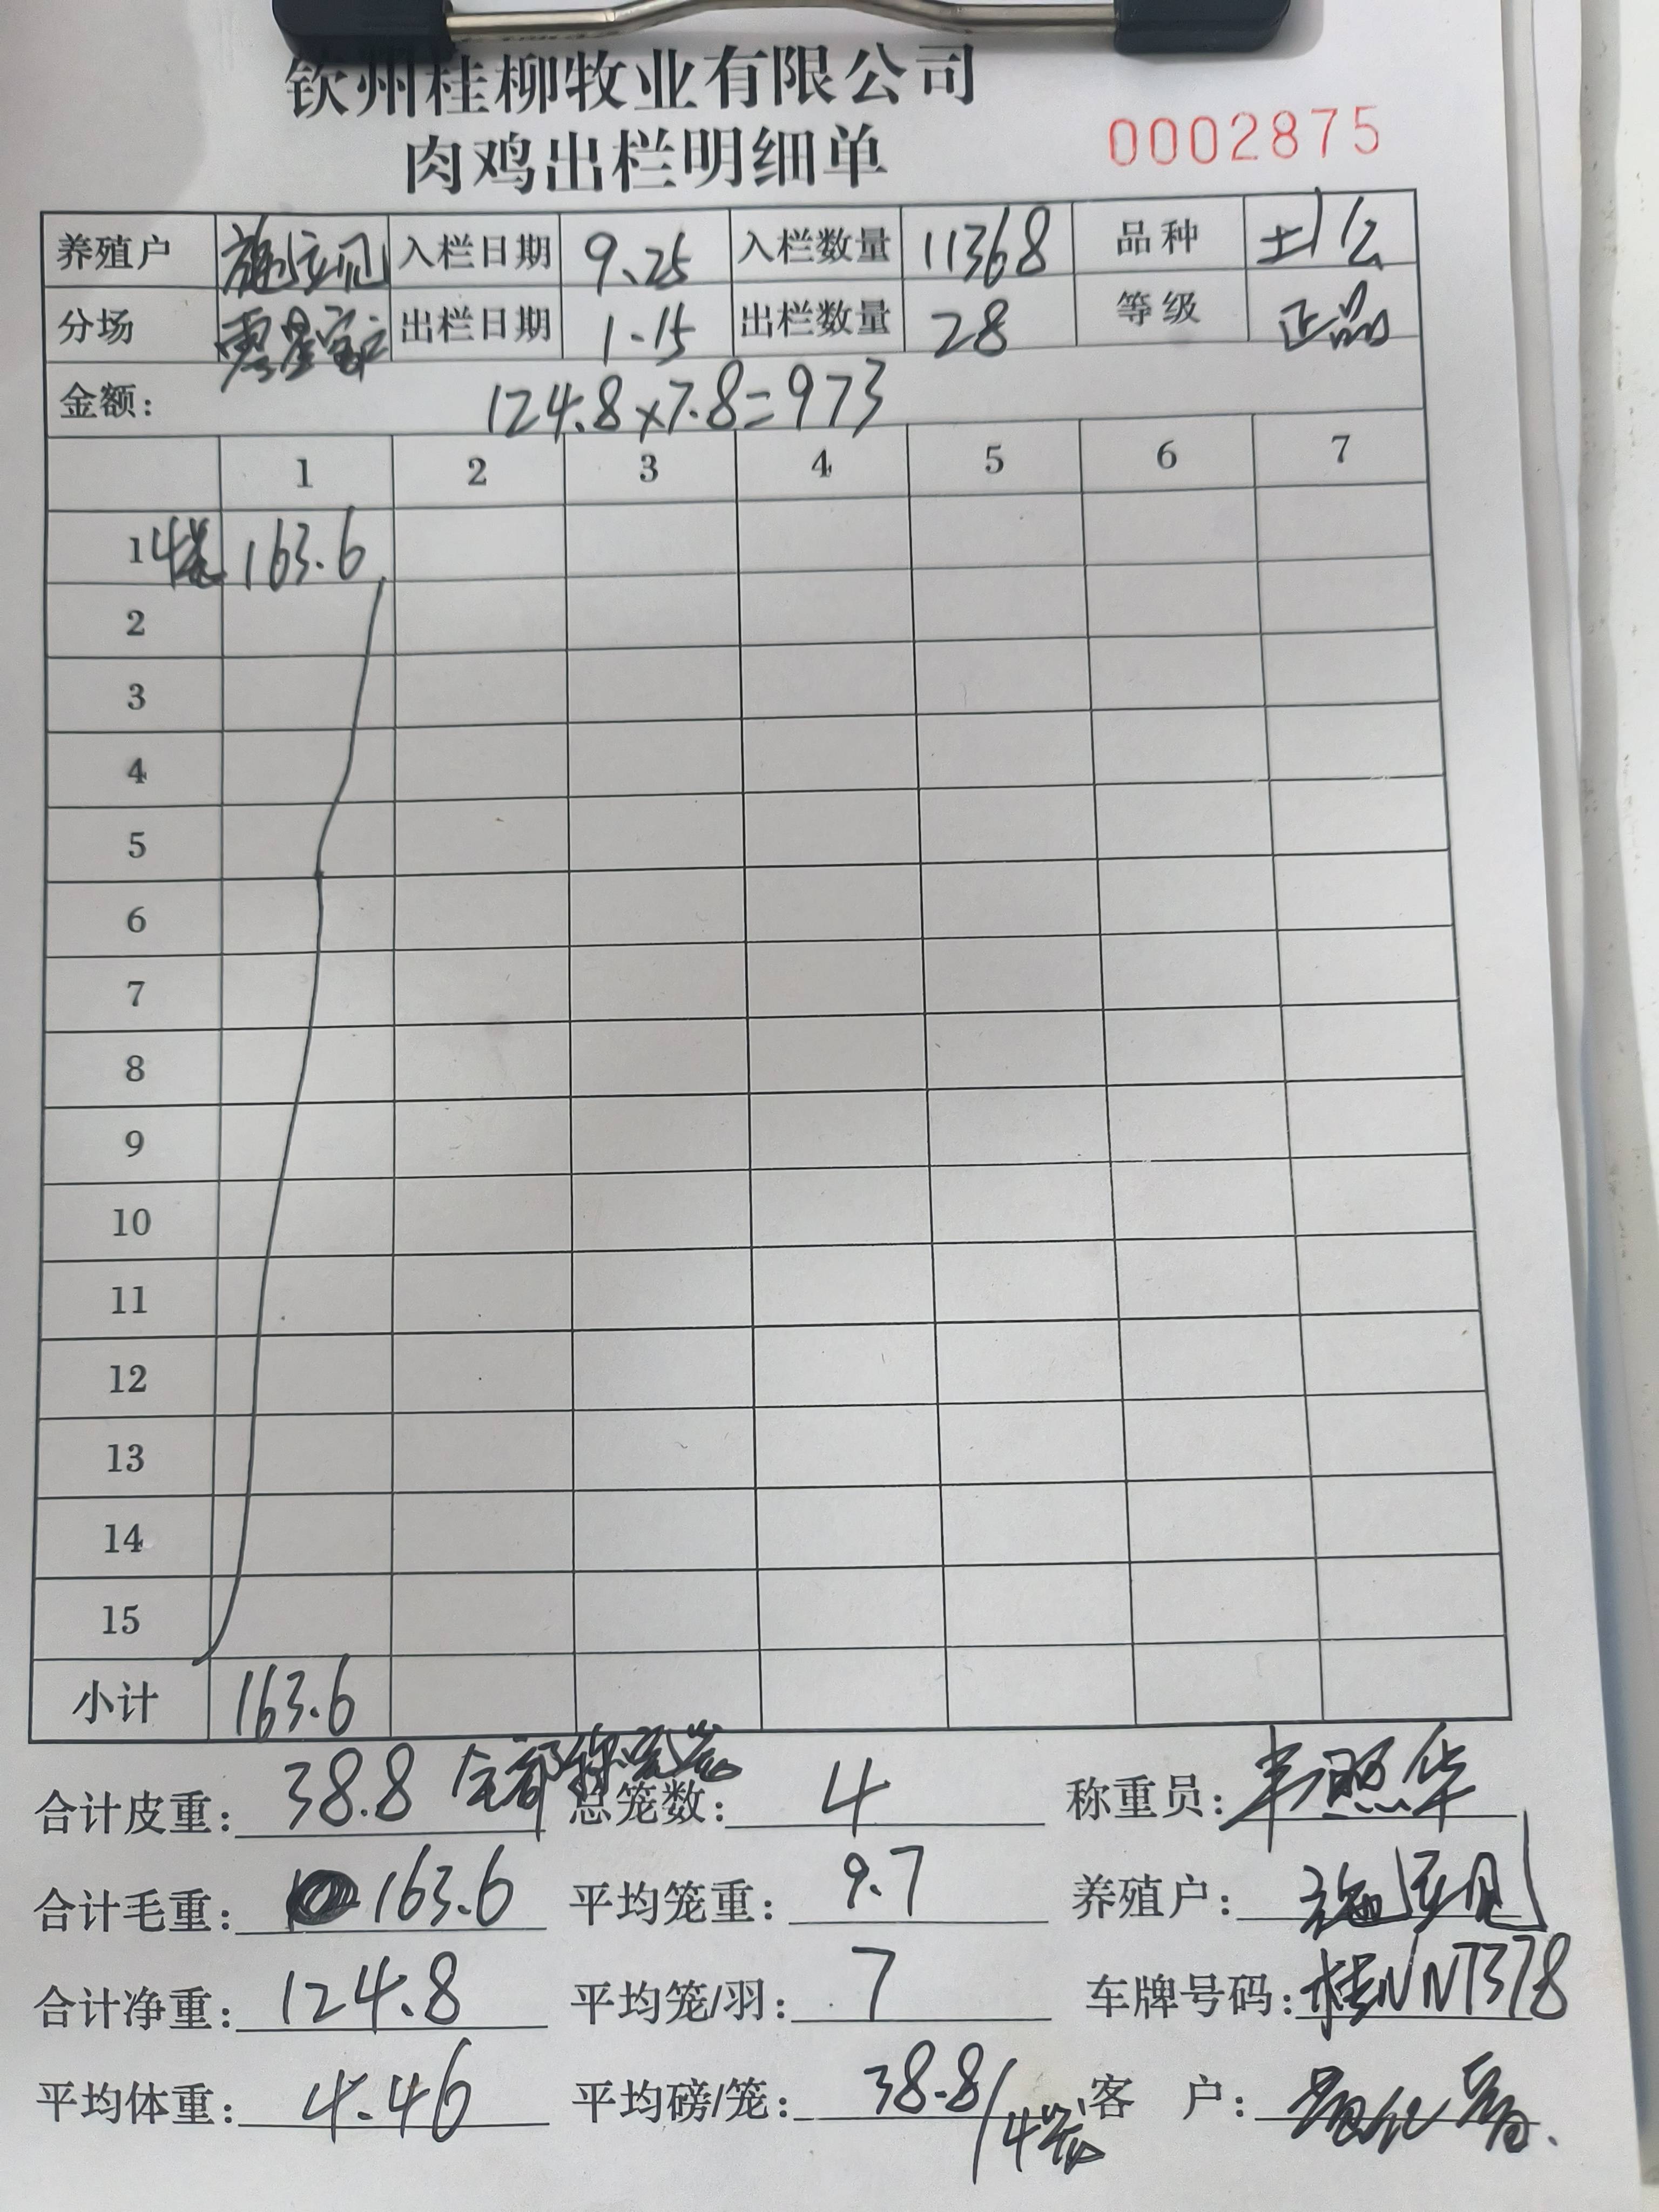 钦州桂柳牧业有限公司
肉鸡出栏明细单
0002875
养殖户 入栏日期 9.25 入栏数量 11368 品种 土1公
分场 出栏日期 1.15 出栏数量 28 等级 正品
金额: 124.8×7.8=973
1 2 3 4 5 6 7
1 4笼 163.6
2
3
4
5
6
7
8
9
10
11
12
13
14
15
小计 163.6
合计皮重: 38.8 全部称完笼 总笼数: 4 称重员:
合计毛重: 163.6 平均笼重: 9.7 养殖户:
合计净重: 124.8 平均笼/羽: 7 车牌号码: 桂NNT378
平均体重: 4.46 平均磅/笼: 38.8/4笼 客户: